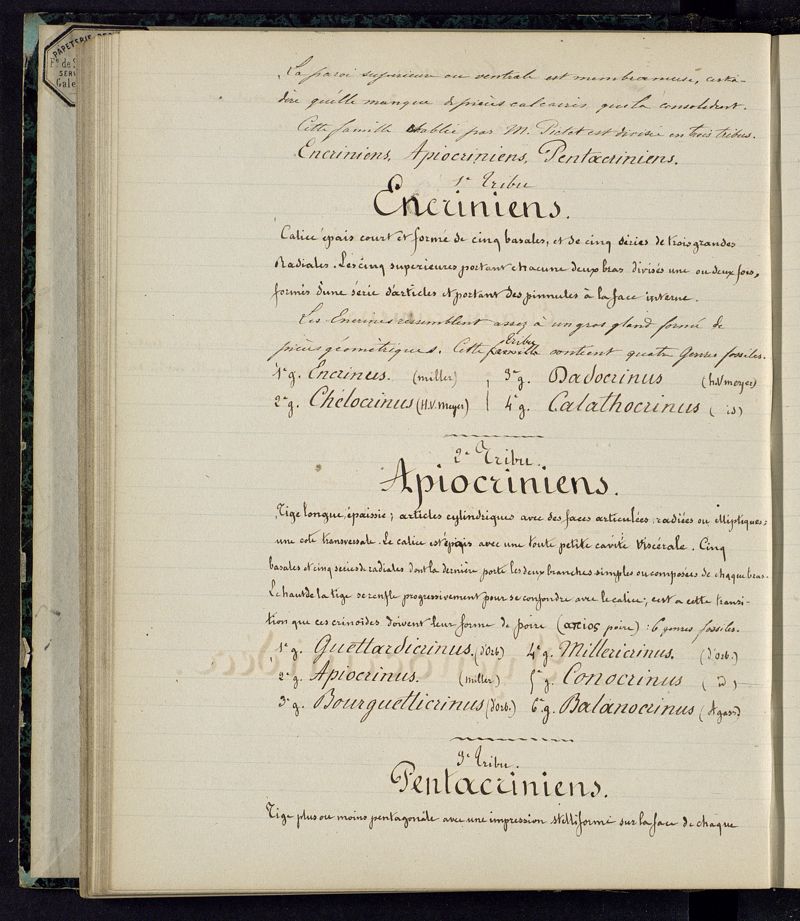 PAPETERIE
La paroi supérieure ou ventrale est membraneuse, c'est à
dire quelle manque de pièces calcaires que la consolident.
Cette famille établie par M. Pictet est divisée en trois tribus.
Encriniens, Apiocriniens, Pentacriniens.
1e Tribu
Encriniens.
Calice épais court et formé de cinq basales, et de cinq séries de trois grandes
Radiales. Les cinq superieures portant chacune deux bras divisés une ou deux fois,
formés d'une série d'articles et portant des pinnules à la face interne.
Les Encrines ressemblent assez à un gros gland formé de
pièces géométriques. Cette tribu contient quatre Genres fossiles.
1er g. Encrinus. (miller) 3e g. Dadocrinus (h.V meyer)
2e g. Chélocrinus (H.V. Meyer) 4e g. Calathocrinus (id)
2e Tribu.
Apiocriniens.
Tige longue, épaissie; articles cylindriques avec des faces articulées, radiées ou elliptiques;
une cote transversale. Le calice est épais avec une toute petite cavité viscérale. Cinq
basales et cinq series de radiales dont la dernière porte les deux branches simples ou composées de chaque bras.
Le haut de la tige se renfle progressivement pour se confondre avec le calice; c'est a cette transi-
tion que ces crinoïdes doivent leur forme de poire (απιος poire): 6 genres fossiles.
1er g. Guettardicrinus. (d'Orb) 4e g. Millericrinus. (d'orb.)
2e g. Apiocrinus. (miller) 5e g. Conocrinus (id)
3e g. Bourguetticrinus (d'Orb.) 6e g. Balanocrinus (Agass)
3e Tribu.
Pentacriniens.
Tige plus ou moins pentagonale avec une impression stelliforme sur la face de chaque